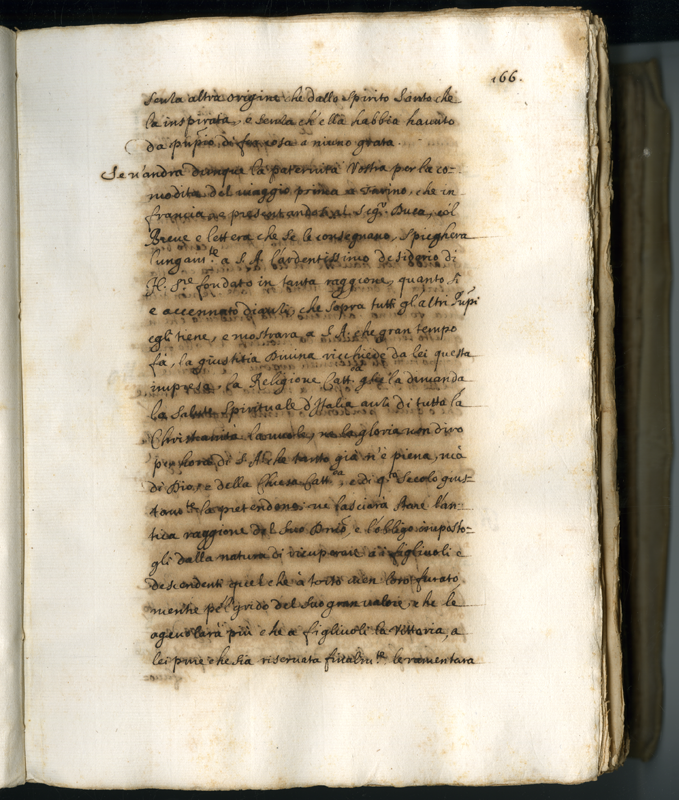 166.
senza altra origine che dallo Spirito Santo che
la inspirata, e senza ch'ella habbia havuto
da
Se n'andra dunque la paternità Vostra per la co-
modità del viaggio prima a Torino, che in
francia, e presentandosi al Sigr. Duca, col
Breve e lettera che se le consegnano, spieghera
lungamte. a S. A. l'ardentissimo desiderio di
N. Sre. fondato in tanta raggione, quanto si
e accennato di qui, che sopra tutti gl'altri
egli tiene, e mostrara a S. A. che gran tempo
fa, la giustitia Divina ricchiede da lei questa
impresa, la Religione Cattca. glie la dimanda
la Salute Spirituale d'Italia anzi di tutta la
Christianità la vuole, ne la gloria non diro
per hora di S. A. che tanto già n'è piena, mà
di Dio, e della Chiesa Cattca., e di qto. Secolo gius-
tamte. la pretendono, ne lasciarà stare l'an-
tica raggione del suo Dnio, e l'obligo imposto-
gli dalla natura di ricuperare a i figliuoli e
descendenti quel che à torto vien loro furato
mentre pel grido del suo gran valore, che le
agevolarà più che a figliuoli la Vittoria, a
lei pare che sia riservata finalmte. le ramentara